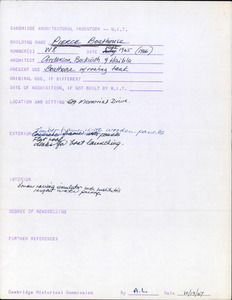 CAMBRIDGE ARCHITECTURAL INVENTORY -- M.I.T.
BUILDING NAME Pierce Boathouse
NUMBER(S) W8 DATE 1965 (1966)
ARCHITECT Anderson, Beckwith & Haible
PRESENT USE Boathouse w/rowing tank
ORIGINAL USE, IF DIFFERENT
DATE OF ACQUISITION, IF NOT BUILT BY M.I.T.
LOCATION AND SETTING Memorial Drive
EXTERIOR timber frame with wooden panels
Flat roof
docks for boat launching.
INTERIOR
DEGREE OF REMODELLING
FURTHER REFERENCES
Cambridge Historical Commission By A.L. Date